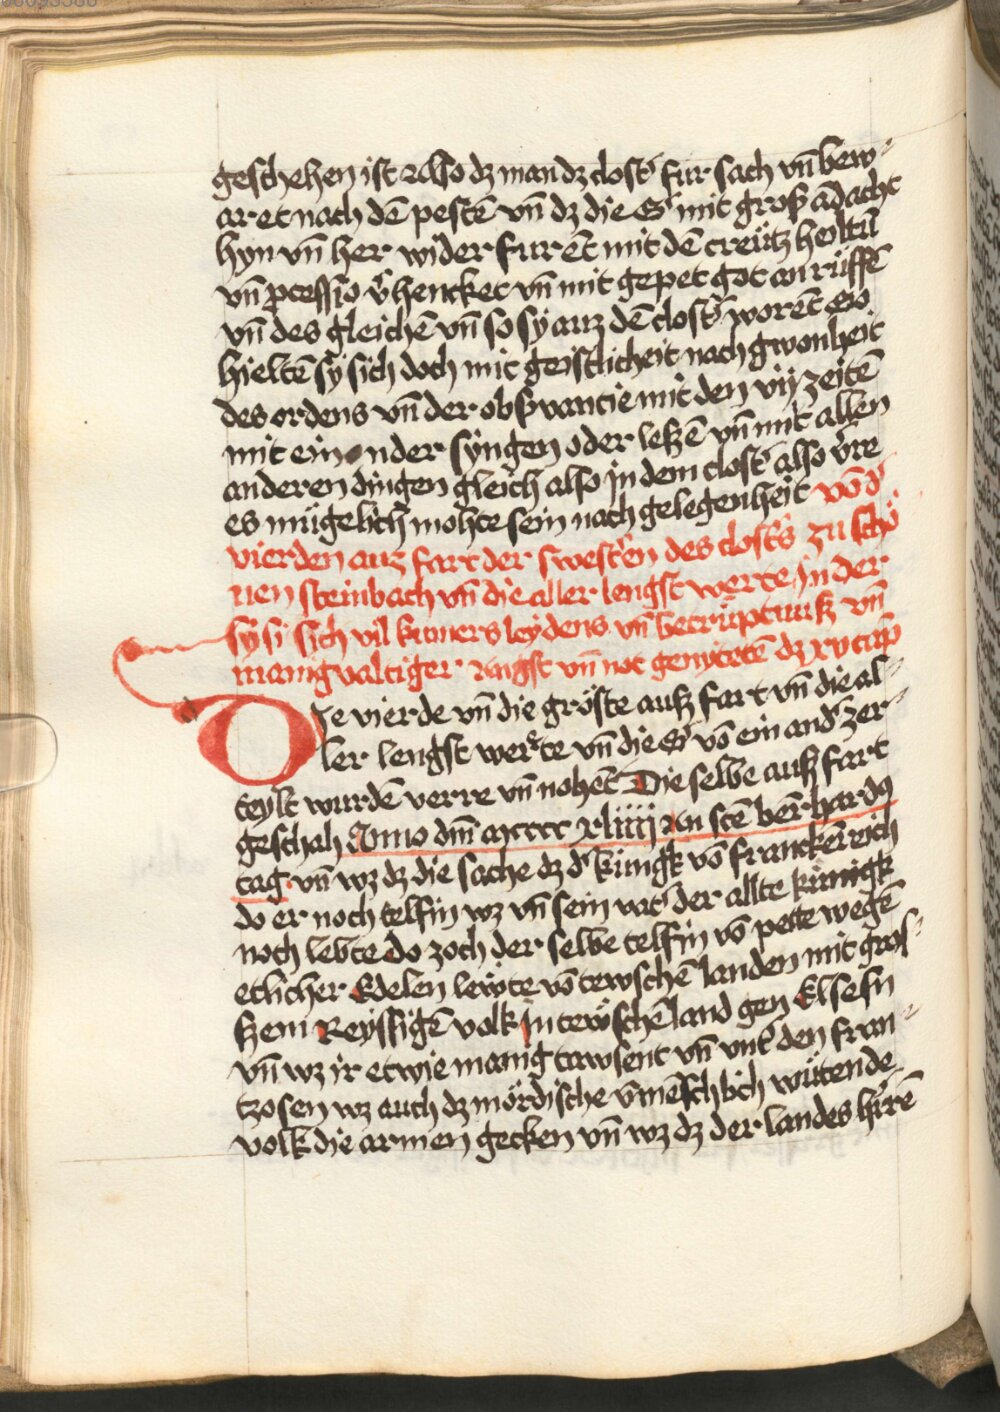 geschehen ist Also dz man dz clost' fur sach vn̄ bew⸗
aret nach dē pestē vn̄ dz die S' mit groß ādacht
hyn vn̄ her wider furēt mit dē creütz heiltū
vn̄ ꝓcessio v'hencket vn̄ mit gepet got an rüffē
vn̄ des gleichē vn̄ so sy auz dē clost' worēt So
hieltē sy sich doch mit geistlicheit nach gwonheit
des ordens vn̄ der obs'vancie mit den vij zeitē
mit einander syngen oder leßē vn̄ mit allen
anderen dingen gleich also in dem clost' also v're
es mügelich mohte sein nach gelegenheit vō d'
vierden auz fart der swestern des closters zu schö
nen steinbach vn̄ die aller lengst werte in der
sy si sich vil kumers leydens vn̄ betrüptnuß vn̄
manigvaltiger Angst vn̄ not genietetē dz xv cap
Die vierde vn̄ die gröste auß fart vn̄ die al⸗
ler lengst werte vn̄ die S' vō ein and' zer⸗
teylt wurdē verre vn̄ nohēt Die selbe auß fart
geschah Anno dm̄ mcccc xliiij An scē bērhardꝰ
tag vn̄ wz dz die sache dz d' küngk vō franckēreich
do er noch telfin wz vn̄ sein vat' der allte künigk
noch lebte do zoch der selbe telfin vō pette wegē
etlicher Edelen lewte vō tewschē landen mit gros⸗
ßem Reyssigē volk in tewschē land gen Elsesn
vn̄ wz ir etwie manig tawsent vn̄ vnt' den fran⸗
tzosen wz auch dz mördische v̄mēschlich wütende
volk die armen gecken vn̄ wz dz der landes h'rē